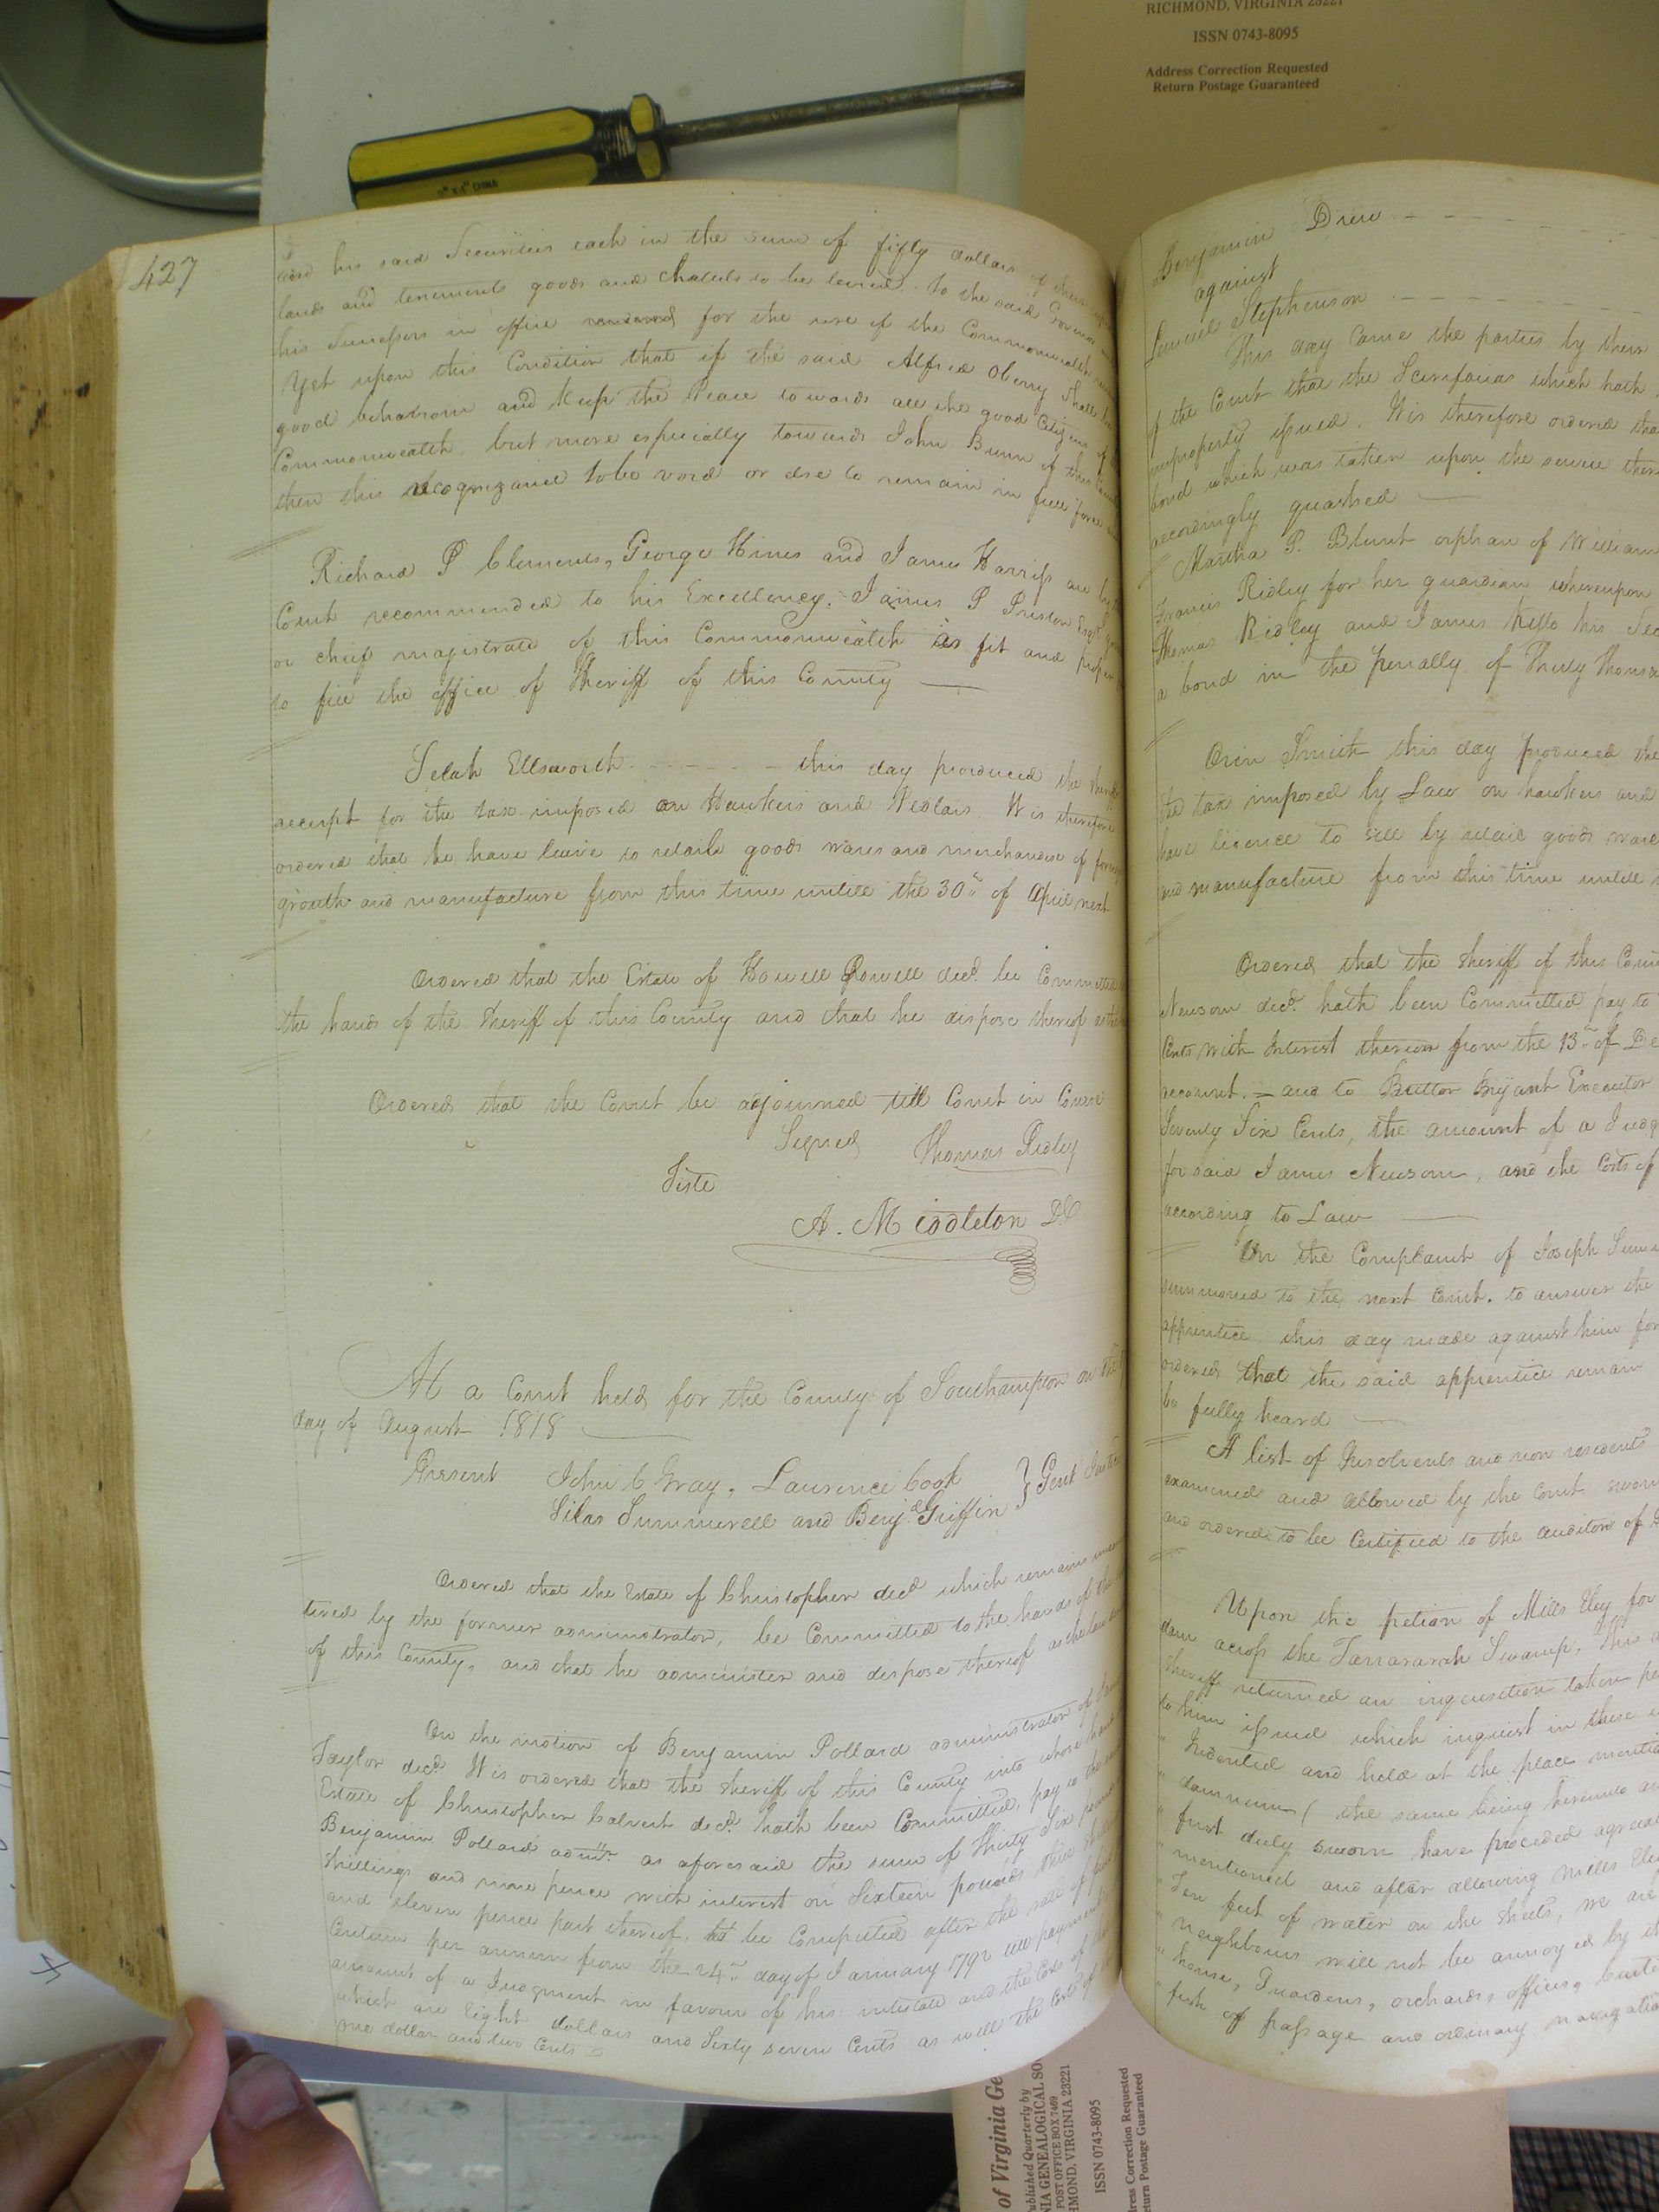 RICHMOND, VIRGINIA 23221
ISSN 0743-8095
Address Correction Requested
Return Postage Guaranteed
CHINA
427
his said Securities each in the sum of fifty dollars of
lands and tenements goods and chattels to be levied. to the said
his Successors in office for the use of the Commonwealth
Yet upon this Condition that if the said Alfred Oberry Shall
good behaviour and Keep the Peace towards all the good Citizens of
Commonwealth, but more especially towards John Bunn of this
then this recognizance to be void or else to remain in full force
Richard P Clements, George Hines and James Harriss are by
Court recommended to his Excellency James P Preston Esqr
or chief magistrate of this Commonwealth as fit and proper
to fill the office of Sheriff of this County
Selah Ellsworth - - - - - - this day produced the
receipt for the tax imposed on Hawkers and Pedlars It is therefore
ordered that he have leave to retaile goods wares and merchandise of
grouth and manufacture from this time untill the 30th of April next
Ordered that the Estate of Howell Powell decd. be Committed
the hands of the Sheriff of this County and that he dispose thereof
Ordered that the Court be adjourned till Court in Course
Signed Thomas Ridley
Teste
A. Middleton DC
At a Court held for the County of Southampton on the
day of August 1818
Present John C Gray, Laurence Cook
Silas Summerell and Benj. Griffin } Gent
Ordered that the Estate of Christopher decd which remains
tered by the former administrator, be Committed to the hands of the
of this County, and that he administer and dispose thereof
On the motion of Benjamin Pollard administrator of
Taylor decd. It is ordered that the Sheriff of this County into whose hands
Estate of Christopher Calvert decd. hath been Committed, pay to the
Benjamin Pollard admr. as aforesaid the sum of Thirty Six pounds
Shillings and nine pence with interest on Sixteen pounds
and eleven pence part thereof, to be Computed after the rate of
Centum per annum from the 24th day of January 1792 till payment
amount of a Judgment in favour of his intestate and the Costs of
which are Eight dollars and Sixty seven Cents as well the Costs of
one dollar and two Cents
Benjamin Drew - - - - - -
against
Lemuel Stephenson - - - - - -
This day Came the parties by their
of the Court that the Scirefacias which hath
improperly issued. It is therefore ordered that
bond which was taken upon the
accordingly quashed
Martha P. Blunt orphan of William
Francis Ridley for her guardian whereupon
Thomas Ridley and James his
a bond in the penalty of Thirty Thousand
Orin Smith this day produced the
the tax imposed by Law on hawkers and
have licence to sell by retail goods
and manufacture from this time untill
Ordered that the Sheriff of this
Newsom decd. hath been Committed pay to
Cents with Interest thereon from the 13th of
account. and to Button Bryant Executor
Seventy Six Cents, the amount of a
for said James Newsom, and the Costs of
according to Law
On the Complaint of Joseph
summoned to the next Court. to answer the
apprentice this day made against him for
ordered that the said apprentice remain
be fully heard
A list of Insolvents and non residents
examined and allowed by the Court
and ordered to be Certified to the auditor of
Upon the petion of Mills Eley for
dam across the Tarrarah Swamp. This
Sheriff returned an inquisition taken
to him issued which inquest in these
Indented and held at the place
damnum (the same being hereunto
first duly sworn have proceded
mentioned and after allowing Mills
Ten feet of water on the Sheets, we are
neighbours will not be annoyed by
house, Guardens, orchards, offices,
fish of passage and ordinary
of Virginia Ge
ublished Quarterly by
NIA GENEALOGICAL SO
POST OFFICE BOX 7469
HMOND, VIRGINIA 23221
ISSN 0743-8095
dress Correction Requested
eturn Postage Guaranteed